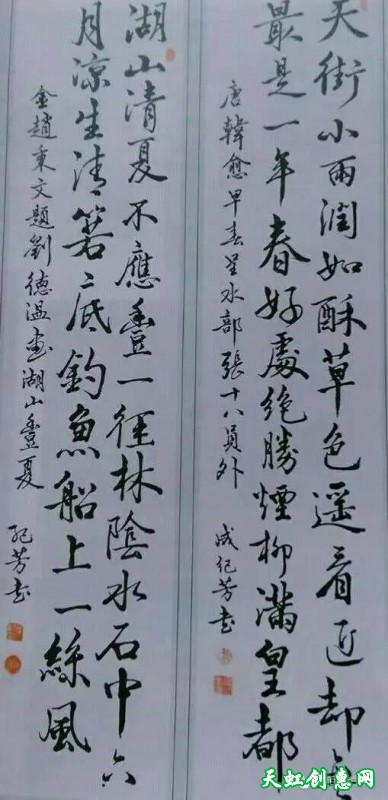 天街小雨潤如酥草色遥看近却無
最是一年春好處絶勝煙柳滿皇都
唐韓愈早春呈水部張十八員外
成纪芳书
湖山清夏不應豊一徑林陰水石中六
月凉生清箬〻底釣魚船上一絲風
金趙秉文題劉德温画湖山豊夏
纪芳书
天虹创惠网